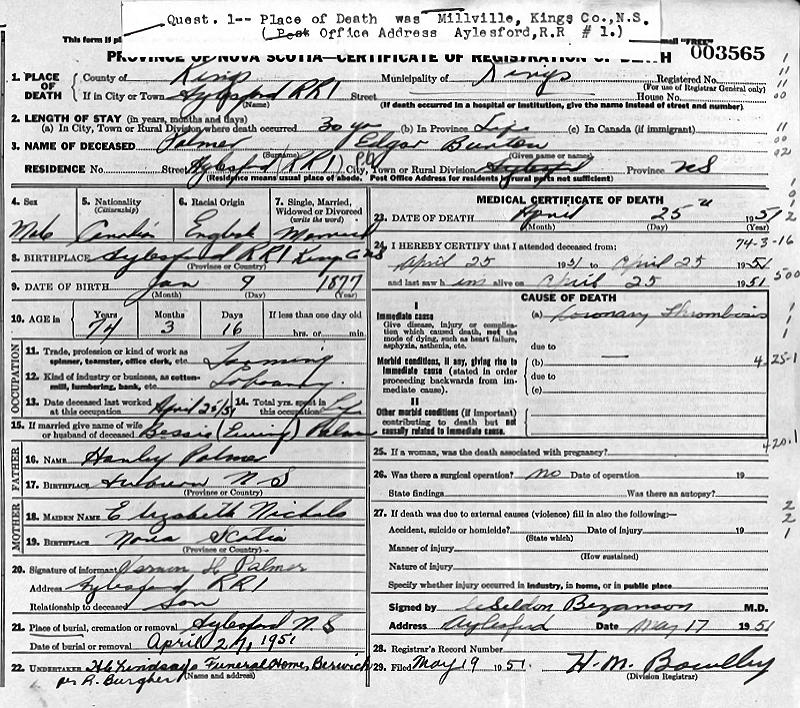 Quest. 1-- Place of Death was Millville, Kings Co.,N.S.
( Post Office Address Aylesford,R.R # 1.)
This form if pl
mail "FREE"
003565
PROVINCE OF NOVA SCOTIA—CERTIFICATE OF REGISTRATION OF DEATH
1. PLACE OF DEATH County of Kings Municipality of Kings Registered No.
(For use of Registrar General only)
If in City or Town Aylesford RR1 Street House No.
(Name) (If death occurred in a hospital or institution, give the name instead of street and number)
2. LENGTH OF STAY (in years, months and days)
(a) In City, Town or Rural Division where death occurred 30 yr (b) In Province Life (c) In Canada (if immigrant)
3. NAME OF DECEASED Palmer Edgar Burton
(Surname) (Given name or names)
RESIDENCE No. Street Aylesford (RR1) City, Town or Rural Division Aylesford Province NS
(Residence means usual place of abode. Post Office Address for residents of rural parts not sufficient)
4. Sex 5. Nationality (Citizenship) 6. Racial Origin 7. Single, Married, Widowed or Divorced (write the word)
Male Canadian English Married
8. BIRTHPLACE Aylesford RR1 Kings Co NS
(Province or Country)
9. DATE OF BIRTH Jan 9 1877
(Month) (Day) (Year)
10. AGE in Years Months Days If less than one day old
74 3 16 hrs. or min.
OCCUPATION
11. Trade, profession or kind of work as spinner, teamster, office clerk, etc. Farming
12. Kind of industry or business, as cotton-mill, lumbering, bank, etc.
13. Date deceased last worked at this occupation April 25/51 14. Total yrs. spent in this occupation Life
15. If married give name of wife or husband of deceased Bessie (Ewing) Palmer
FATHER
16. NAME Hanley Palmer
17. BIRTHPLACE Auburn N S
(Province or Country)
MOTHER
18. MAIDEN NAME Elizabeth Nichols
19. BIRTHPLACE Nova Scotia
(Province or Country)
20. Signature of informant Vernon H Palmer
Address Aylesford RR1
Relationship to deceased Son
21. Place of burial, cremation or removal Aylesford N S
Date of burial or removal April 27, 1951
22. UNDERTAKER H C Lindsay's Funeral Home, Berwick
per R. Burgher (Name and address)
MEDICAL CERTIFICATE OF DEATH
23. DATE OF DEATH April 25th 1951
(Month) (Day) (Year)
74-3-16
24. I HEREBY CERTIFY that I attended deceased from:
April 25 1951 to April 25 1951
and last saw him alive on April 25 1951
500
CAUSE OF DEATH
I
Immediate cause (a) Coronary Thrombosis
Give disease, injury or complication which caused death, not the mode of dying, such as heart failure, asphyxia, asthenia, etc.
due to
Morbid conditions, if any, giving rise to immediate cause (stated in order proceeding backwards from immediate cause).
(b) —
4-25-1
due to
(c)
II
Other morbid conditions (if important) contributing to death but not causally related to immediate cause.
420.1
25. If a woman, was the death associated with pregnancy?
26. Was there a surgical operation? no Date of operation 19
State findings Was there an autopsy?
27. If death was due to external causes (violence) fill in also the following:—
Accident, suicide or homicide? Date of injury 19
(State which)
Manner of injury
(How sustained)
Nature of injury
Specify whether injury occurred in industry, in home, or in public place
Signed by Seldon Bezanson M.D.
Address Aylesford Date May 17 1951
28. Registrar's Record Number
29. Filed May 19 1951. H. M. Bowlby
(Division Registrar)